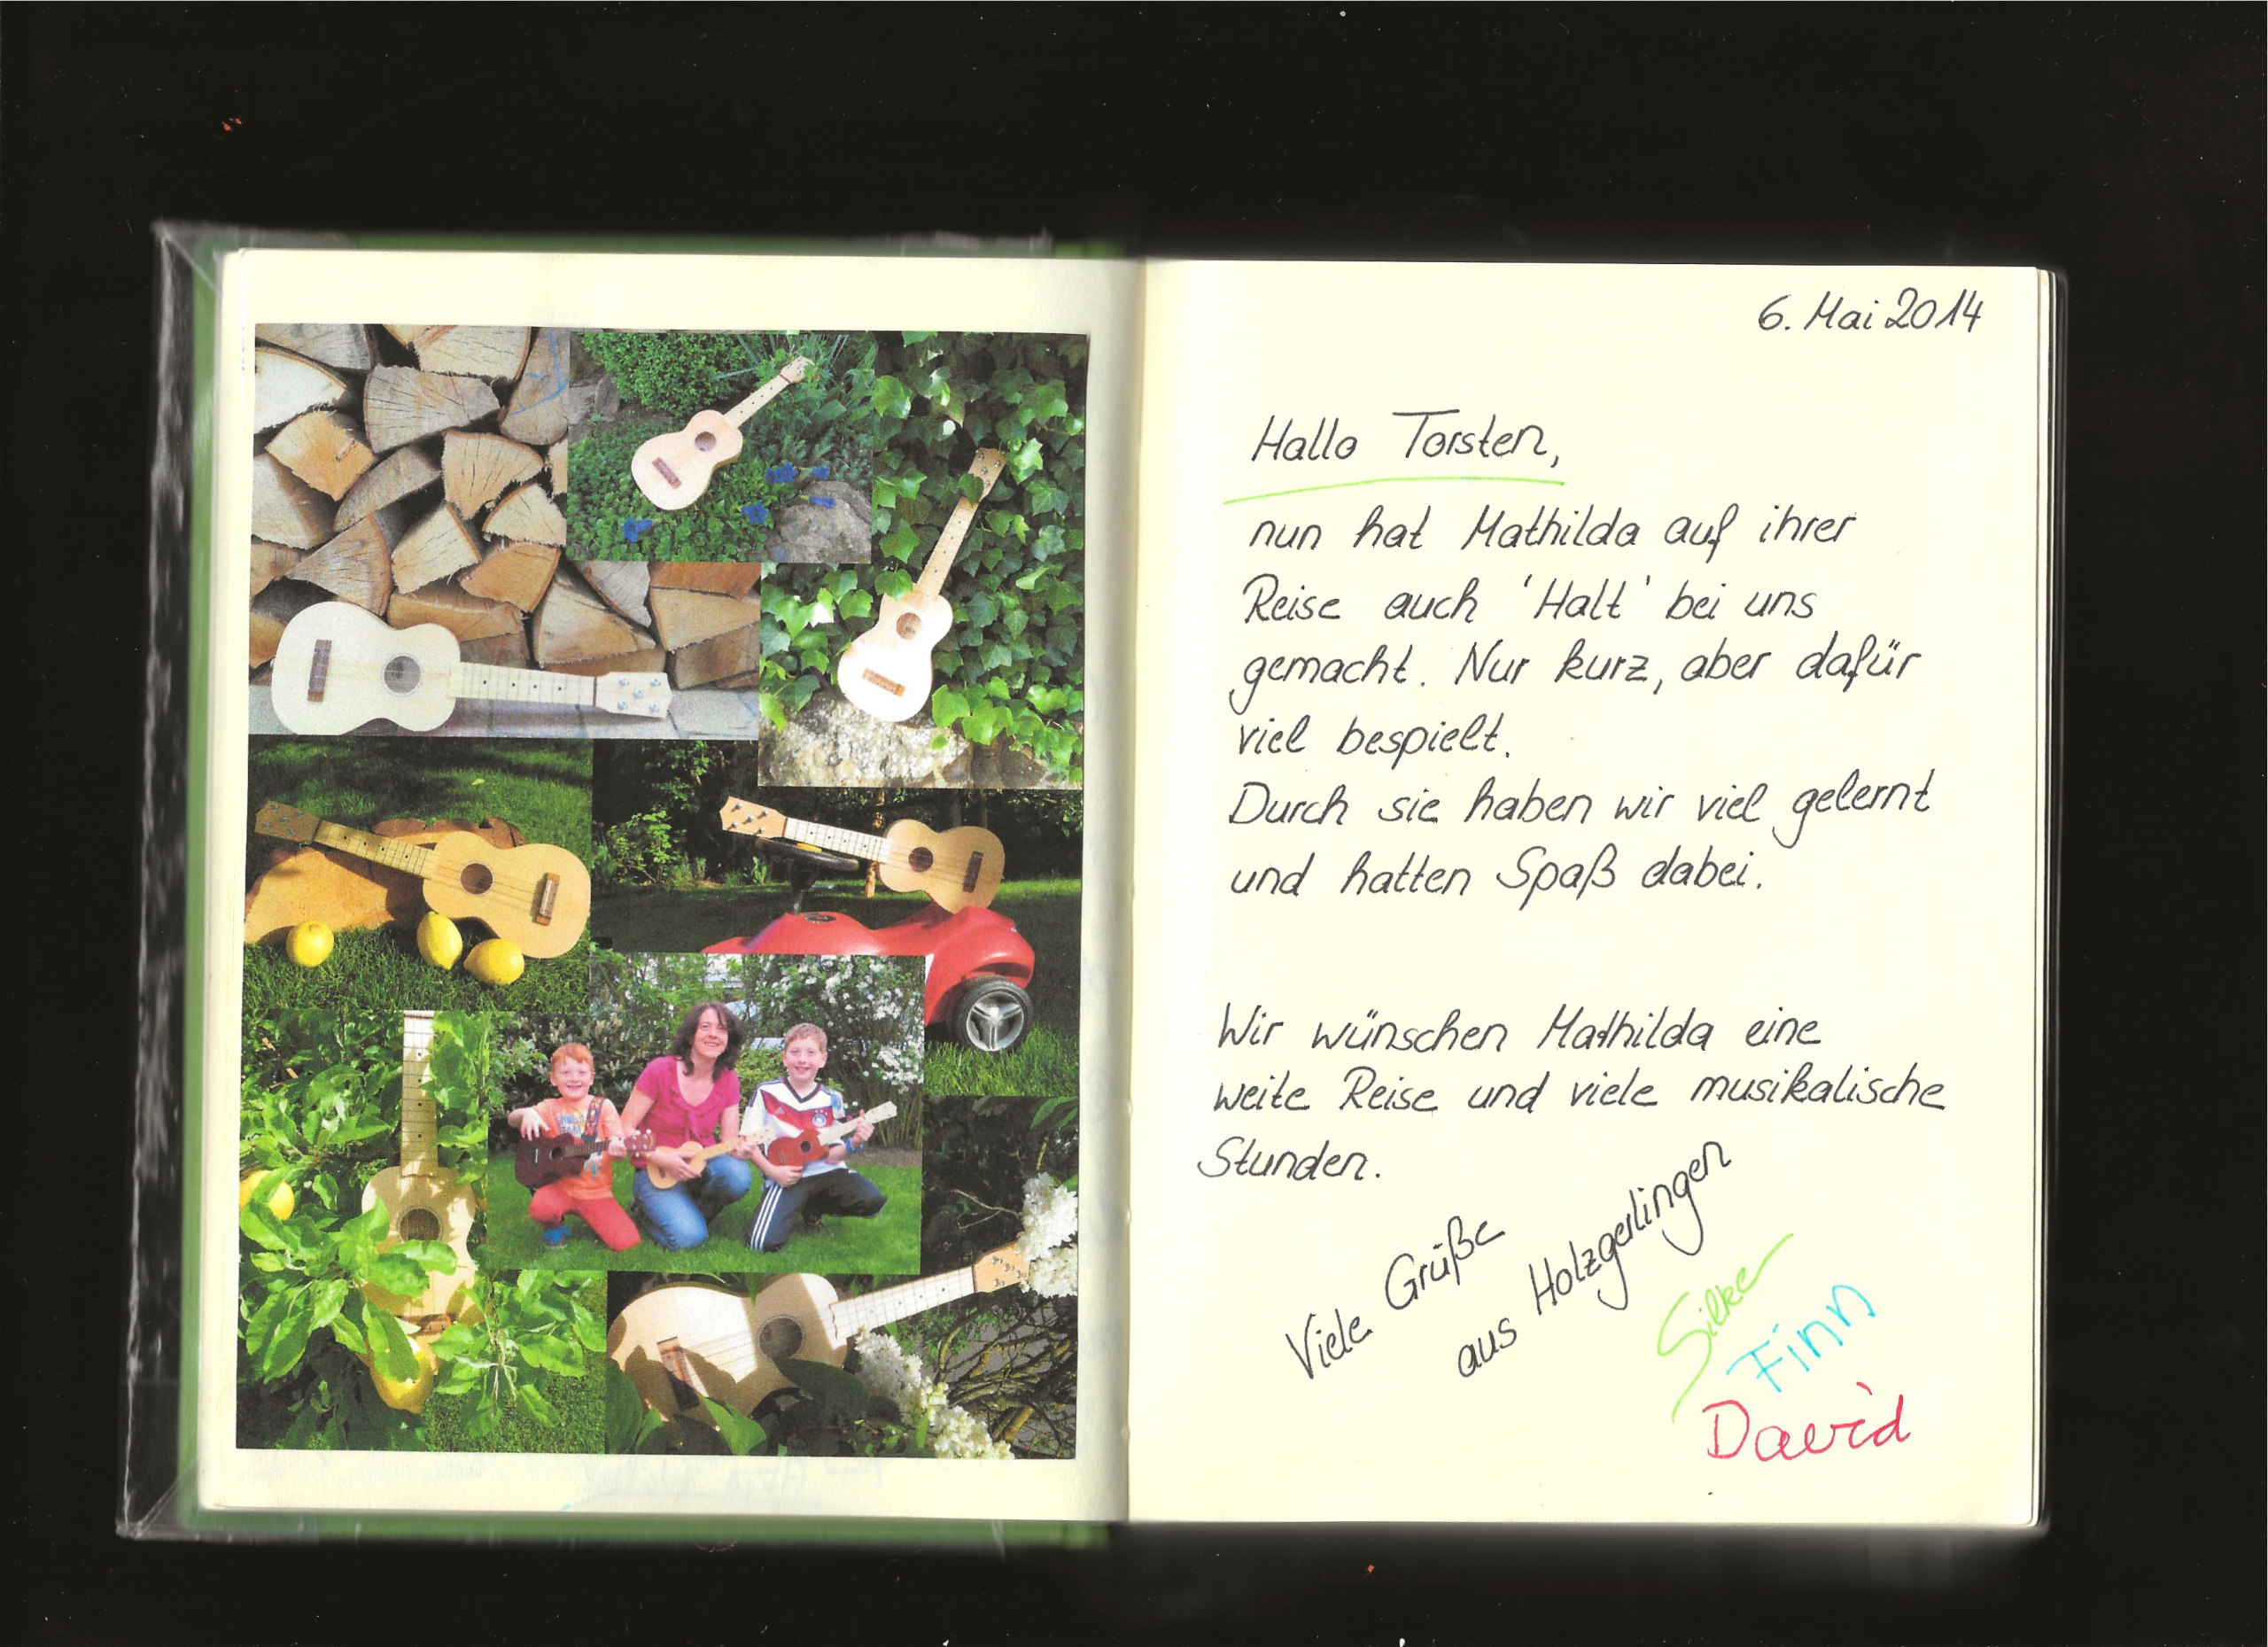 6. Mai 2014
Hallo Torsten,
nun hat Mathilda auf ihrer
Reise auch 'Halt' bei uns
gemacht. Nur kurz, aber dafür
viel bespielt.
Durch sie haben wir viel gelernt
und hatten Spaß dabei.
Wir wünschen Mathilda eine
weite Reise und viele musikalische
Stunden.
Viele Grüße
aus Holzgerlingen
Silke
Finn
David